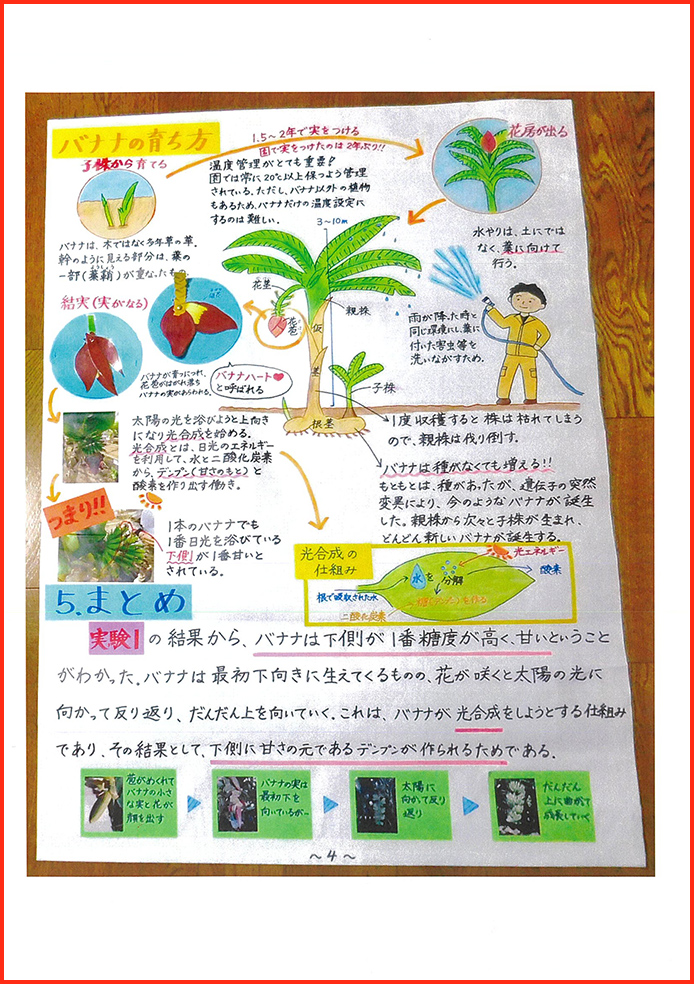 バナナの育ち方
子株から育てる
1.5～2年で実をつける
園で実をつけたのは2年ぶり!!
温度管理がとても重要!
園では常に20℃以上保つよう管理
されている。ただし、バナナ以外の植物
もあるため、バナナだけの温度設定に
するのは難しい。
花房が出る
バナナは、木ではなく多年草の草。
幹のように見える部分は、葉の
一部(葉鞘)が重なった
3～10m
水やりは、土にでは
なく、葉に向けて
行う。
結実(実がなる)
花茎
花苞
仮
茎
親株
子株
根茎
雨が降った時と
同じ環境にし、葉に
付いた害虫等を
洗いながすため。
バナナが育つにつれ、
花苞がはがれ落ち
バナナの実があらわれる。
バナナハート
と呼ばれる
太陽の光を浴びようと上向き
になり光合成を始める。
光合成とは、日光のエネルギー
を利用して、水と二酸化炭素
から、デンプン(甘さのもと)と
酸素を作り出す働き。
1度収穫すると株は枯れてしまう
ので、親株は伐り倒す。
バナナは種がなくても増える!!
もともとは、種があったが、遺伝子の突然
変異により、今のようなバナナが誕生
した。親株から次々と子株が生まれ、
どんどん新しいバナナが誕生する。
つまり!!
1本のバナナでも
1番日光を浴びている
下側が1番甘いと
されている。
光合成の
仕組み
光エネルギー
水を分解
酸素
根で吸収された水
糖(デンプン)を作る
二酸化炭素
5.まとめ
実験1の結果から、バナナは下側が1番糖度が高く、甘いということ
がわかった。バナナは最初下向きに生えてくるものの、花が咲くと太陽の光に
向かって反り返り、だんだん上を向いていく。これは、バナナが光合成をしようとする仕組み
であり、その結果として、下側に甘さの元であるデンプンが作られるためである。
苞がめくれて
バナナの小さ
な実と花が
顔を出す
バナナの実は
最初下を
向いているが…
太陽に
向かって反り
返り
だんだん
上に曲がって
成長していく
～4～